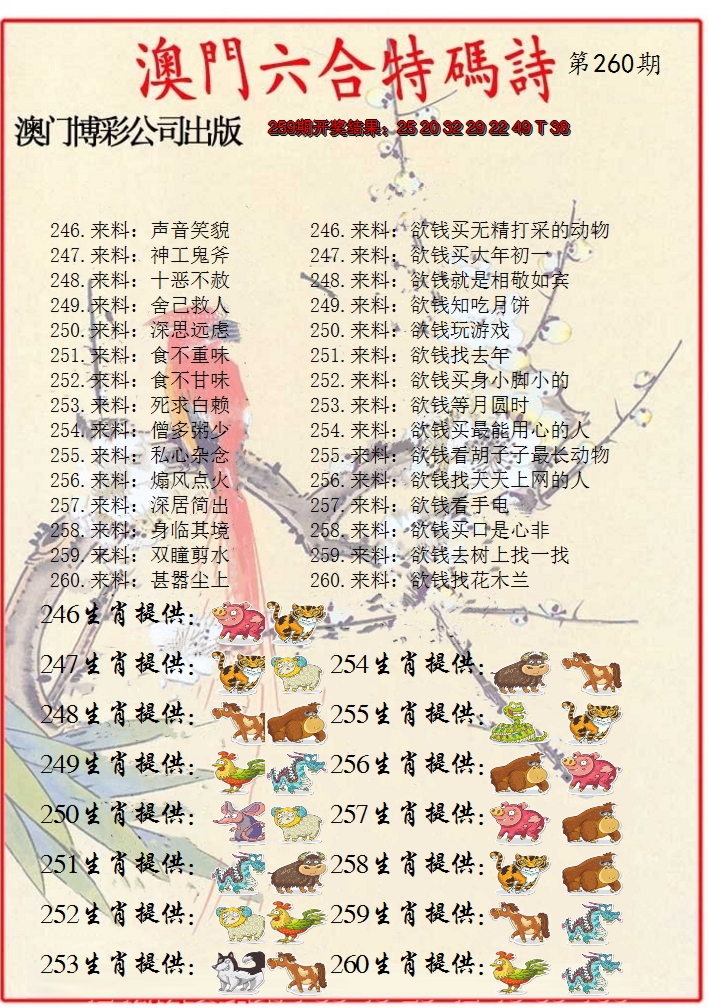 澳門六合特碼詩 第260期
澳门博彩公司出版 259期开奖结果：25 20 32 29 22 49 T 36
246.来料：声音笑貌 246.来料：欲钱买无精打采的动物
247.来料：神工鬼斧 247.来料：欲钱买大年初一
248.来料：十恶不赦 248.来料：欲钱就是相敬如宾
249.来料：舍己救人 249.来料：欲钱知吃月饼
250.来料：深思远虑 250.来料：欲钱玩游戏
251.来料：食不重味 251.来料：欲钱找去年
252.来料：食不甘味 252.来料：欲钱买身小脚小的
253.来料：死求白赖 253.来料：欲钱等月圆时
254.来料：僧多粥少 254.来料：欲钱买最能用心的人
255.来料：私心杂念 255.来料：欲钱看胡子子最长动物
256.来料：煽风点火 256.来料：欲钱找天天上网的人
257.来料：深居简出 257.来料：欲钱看手电
258.来料：身临其境 258.来料：欲钱买口是心非
259.来料：双瞳剪水 259.来料：欲钱去树上找一找
260.来料：甚嚣尘上 260.来料：欲钱找花木兰
246生肖提供：
247生肖提供： 254生肖提供：
248生肖提供： 255生肖提供：
249生肖提供： 256生肖提供：
250生肖提供： 257生肖提供：
251生肖提供： 258生肖提供：
252生肖提供： 259生肖提供：
253生肖提供： 260生肖提供：